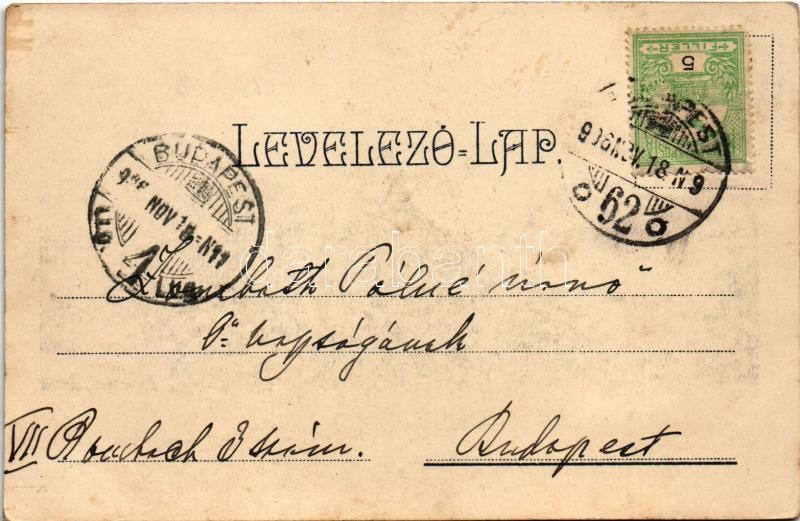 5
FILLÉR
LEVELEZŐ-LAP.
BUDAPEST
906 NOV 18 N 9
62
BUDAPEST
906 NOV 18 N11
Pálné úrnő
Ő nagyságának
VII Rombach 3 szám.
Budapest
darabanth